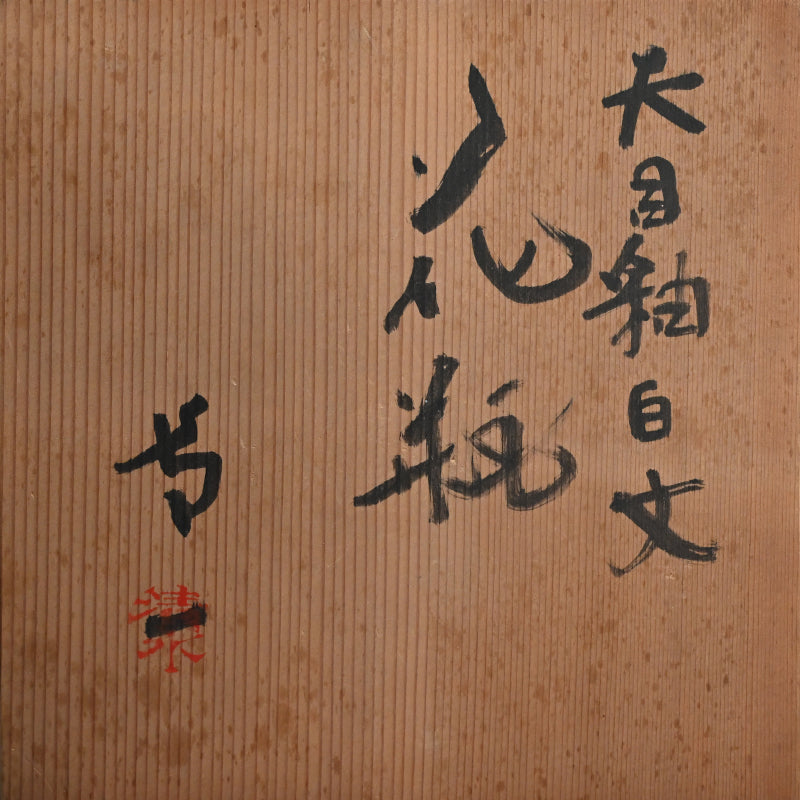 天目釉白文
花瓶